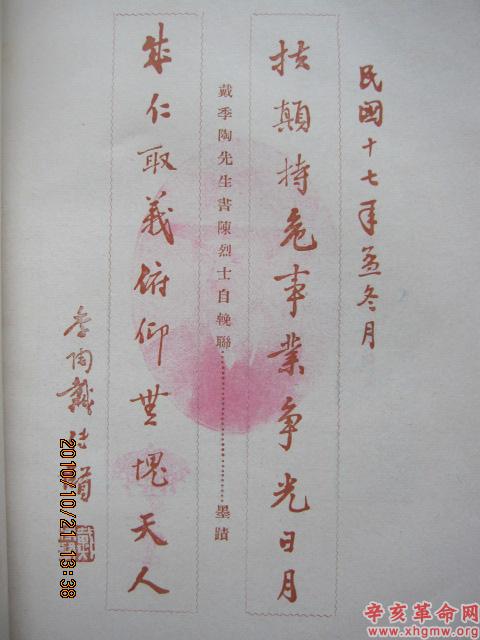 民國十七年孟冬月
扶顛持危事業爭光日月
戴季陶先生書陳烈士自輓聯…………墨蹟
成仁取義俯仰無愧天人
季陶戴传賢
2010/10/21 13:38
辛亥革命网
www.xhgmw.org